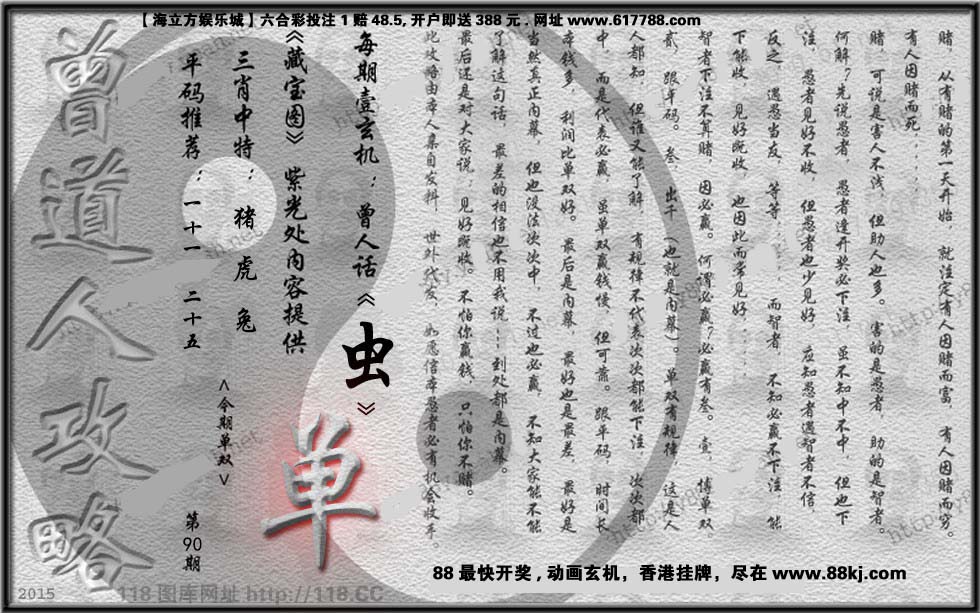 【海立方娱乐城】六合彩投注1赔48.5,开户即送388元.网址www.617788.com
赌，从有赌的第一天开始，就注定有人因赌而富，有人因赌而穷。
有人因赌而死，．．．．．
赌，可说是害人不浅，但助人也多。害的是愚者，助的是智者。
何解？先说愚者，愚者逢开奖必下注，虽不知中不中，但也下
注，愚者见好不收，但愚者也少见好，应知愚者遇智者不信，
反之，遇愚当友，等等．．．．而智者，不知必赢不下注，能
下能收，见好既收，也因此而常见好．．．．．
智者下注不算赌，因必赢。何谓必赢？必赢有叁。壹，博单双，
贰，跟平码。叁，出千（也就是内幕）。单双有规律，这是人
人都知，但谁又能了解，有规律不代表次次都能下注，次次都
中，而是代表必赢，虽单双赢钱慢，但可靠。跟平码，时间长，
本钱多，利润比单双好。最后是内幕，最好也是最差，最好是
当然真正内幕，但也没法次次中，不过也必赢，不知大家能不能
了解这句话，最差的相信也不用我说……到处都是内幕。
最后还是对大家说：见好既收。不怕你赢钱，只怕你不赌。
此攻略由本人亲自发料，世外代友，如愿信本愚者必有机会收手。
每期壹玄机：曾人话《虫》
《藏宝图》紫光处内容提供
三肖中特：猪 虎 兔
平码推荐：一十一 二十五
<今期单双>
单
第90期
曾道人攻略
88最快开奖,动画玄机，香港挂牌，尽在www.88kj.com
2015
118图库网址 http://118.CC